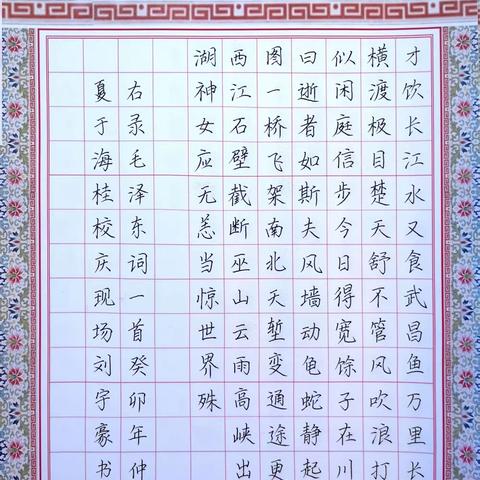 才饮长江水又食武昌鱼万里长
横渡极目楚天舒不管风吹浪打
似闲庭信步今日得宽馀子在川
曰逝者如斯夫风墙动龟蛇静起
图一桥飞架南北天堑变通途更
西江石壁截断巫山云雨高峡出
湖神女应无恙当惊世界殊
右录毛泽东词一首癸卯年仲
夏于海桂校庆现场刘宇豪书